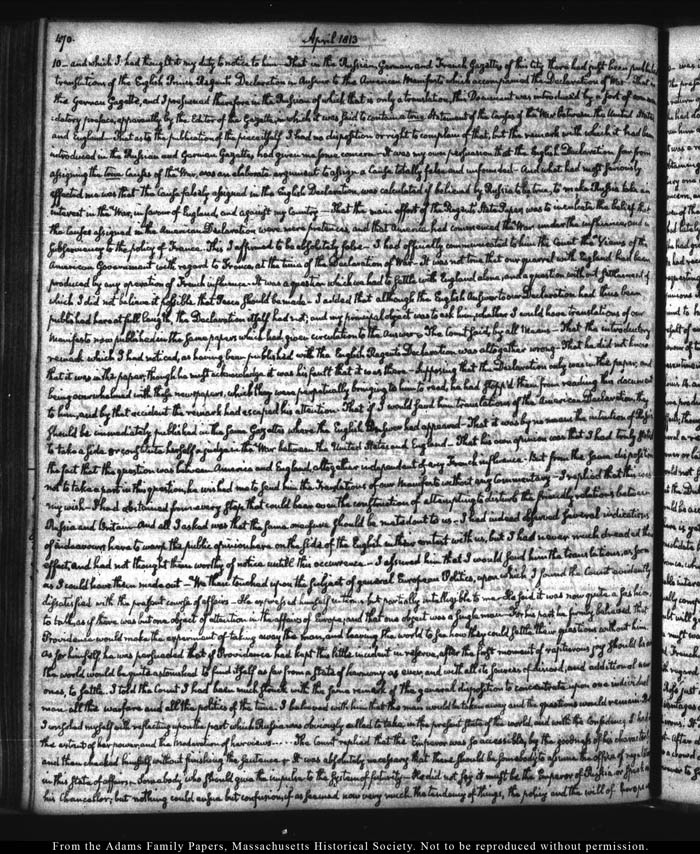 470.
April 1813
10 — and which I had thought it my duty to notice to him — That in the Russian, German, and French Gazettes of this City there had just been published
translations of the English Prince Regent's Declaration in Answer to the American Manifesto which accompanied the Declaration of War — That in
the German Gazette, and I presumed therefore in the Russian of which that is only a translation, this Document was introduced by a sort of
datory preface, apparently by the Editor of the Gazette, in which it was said to contain a true Statement of the Causes of the War between the United States
and England — That as to the publication of the piece itself I had no disposition or right to complain of that, but the remark with which it had been
introduced in the Russian and German Gazettes had given me some concern — It was my own persuasion that the English Declaration far from
assigning the true Causes of the War, was an elaborate argument to assign a Cause totally false and unfounded — And what had most seriously
affected me was that the Cause falsely assigned in the English Declaration, was calculated if believed by Russia to be true, to make Russia take an
interest in the War, in favour of England, and against my Country — That the main effort of the Regent's State Paper was to inculcate the belief that
the Causes assigned in the American Declaration were mere pretences, and that America had commenced the War under the influence, and in
subserviency to the policy of France. This I affirmed to be absolutely false — I had officially communicated to him the Count the Views of the
American Government with regard to France, at the time of the Declaration of War — It was not true that our quarrel with England had been
produced by any operation of French influence — It was a question which we had to settle with England alone, and a question without settlement of
which I did not believe it possible that Peace should be made — I added that although the English Answer to our Declaration had thus been
published here at full length, the Declaration itself had not; and my principal object was to ask him, whether I could have translations of our
Manifesto now published in the same papers which had given circulation to the Answer. The Count said, by all Means — That the introductory
remark which I had noticed, as having been published with the English Regent's Declaration was altogether wrong — That he did not know
that it was in the paper, though he must acknowledge it was his fault that it was there — Supposing that the Declaration only was in the papers, and
being overwhelmed with these newspapers, which they were perpetually bringing to him to read, he had stopp'd them from reading this document
to him, and by that accident the remark had escaped his attention — That if I would send him translations of the American Declaration they
should be immediately published in the same Gazettes where the English Answer had appeared — That it was by no means the intention of Russia
to take a side or constitute herself a judge in the War between the United States and England — That his own opinion was that I had truly stated
the fact that the question was between America and England, altogether independent of any French influence — But from the same disposition
not to take a part in this question, he wished me to send him the Translations of our Manifesto without any Commentary — I replied that this was
my wish — I had abstained from every step that could bear even the construction of attempting to disturb the friendly relations between
Russia and Britain — And all I asked was that the same measure should be meted out to us — I had indeed observed several indications
of endeavours here to warp the public opinion here on the side of the English in their contest with us, but I had never much dreaded the
effect, and had not thought them worthy of notice until this occurrence — I assured him that I would send him the translations, as soon
as I could have them made out — We then touched upon the subject of general European Politics, upon which I found the Count evidently
dissatisfied with the present course of affairs — He expressed himself in terms but partially intelligible to me — He said it was now quite a fashion
to talk, as if there was but one object of attention in the affairs of Europe, and that one object was a single man — For his part he firmly believed that
Providence would make the experiment of taking away the man, and leaving the world to see how they could settle these questions without him.
As for himself he was persuaded that if Providence had kept this little incident in reserve, after the first moment of rapturous joy should be
the world would be quite astonished to find itself as far from a State of harmony as ever and with all its sources of discord, and additional new
ones, to settle. I told the Count I had been much struck with the same remark of the general disposition to concentrate upon one individual
man all the warfare and all the politics of the time. I believed with him that the man would be taken away and the questions would remain
I consoled myself with reflecting upon the part which Russia was obviously called to take in the present State of the world, and with the Confidence I had
the extent of her power, and the Moderation of her views . . . . . The Count replied that the Emperor was so accessible, by the goodness of his character
and then checked himself without finishing the sentence — It was absolutely necessary that there should be somebody to assume the office of
in this State of affairs — Somebody who should give the impulse to the System of futurity — He did not say it must be the Emperor of Russia or
his Chancellor; but nothing could ensue but confusion, if as seemed now very much the tendency of things, the policy and the will of Europe
From the Adams Family Papers, Massachusetts Historical Society. Not to be reproduced without permission.